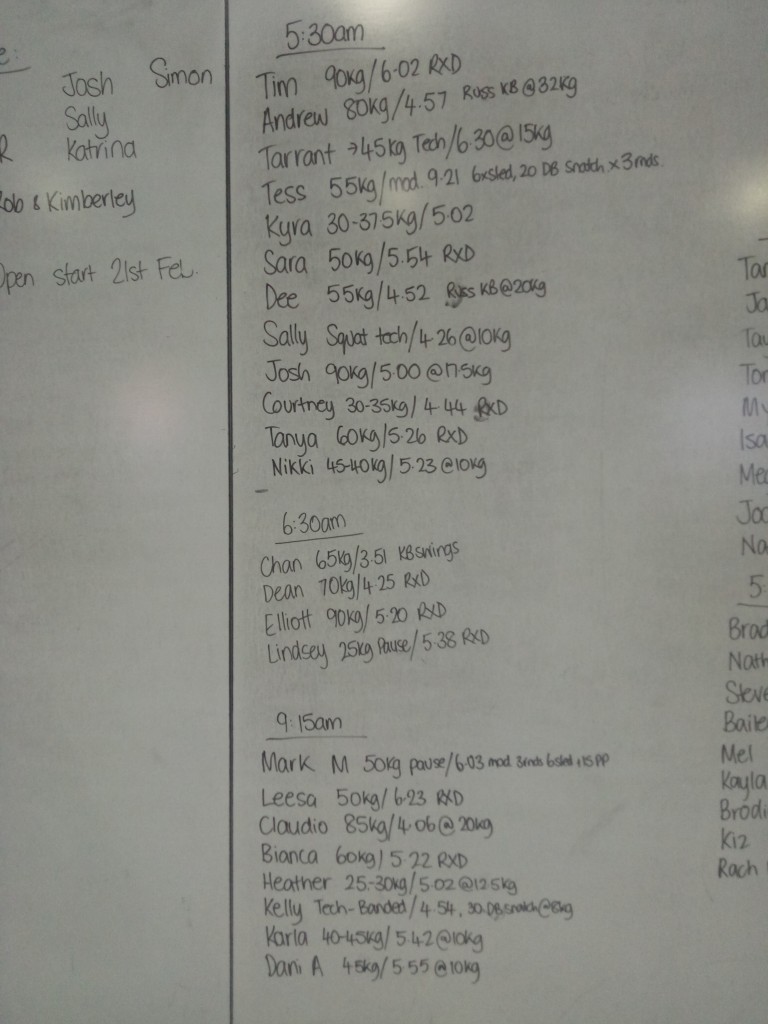 e:
Josh Simon
Sally
R Katrina
Rob & Kimberley
Open start 21st Feb.
5:30am
Tim 90kg/6.02 RXD
Andrew 80kg/4.57 Russ KB @ 32kg
Tarrant →45kg Tech/6.30 @ 15kg
Tess 55kg/mod. 9.21 6xsled, 20 DB Snatch x 3 rnds.
Kyra 30-37.5kg/5.02
Sara 50kg/5.54 RXD
Dee 55kg/4.52 Russ KB @ 20kg
Sally Squat tech/4.26 @ 10kg
Josh 90kg/5.00 @ 17.5kg
Courtney 30-35kg/4.44 RXD
Tanya 60kg/5.26 RXD
Nikki 45-40kg/5.23 @ 10kg
6:30am
Chan 65kg/3.51 KB swings
Dean 70kg/4.25 RXD
Elliott 90kg/5.20 RXD
Lindsey 25kg Pause/5.38 RXD
9:15am
Mark M 50kg pause/6.03 mod 3rnds 6 sled + 15 PP
Leesa 50kg/6.23 RXD
Claudio 85kg/4.06 @ 20kg
Bianca 60kg/5.22 RXD
Heather 25-30kg/5.02 @ 12.5kg
Kelly Tech-Banded/4.54, 30 DB snatch @ 8kg
Karla 40-45kg/5.42 @ 10kg
Dani A 45kg/5.55 @ 10kg
Tar
Ja
Tau
Tor
My
Isa
Med
Joc
Na
5:
Brad
Nath
Steve
Baile
Mel
Kayla
Brodi
Kiz
Rach